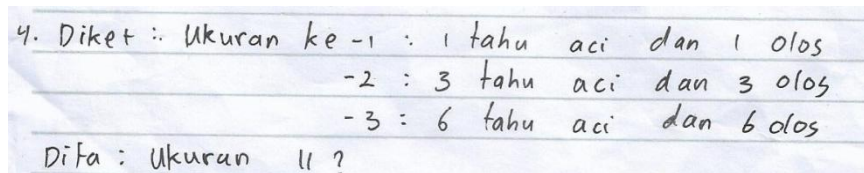 4. Diket : Ukuran ke -1 : 1 tahu aci dan 1 olos
-2 : 3 tahu aci dan 3 olos
-3 : 6 tahu aci dan 6 olos
Dita : Ukuran 11 ?